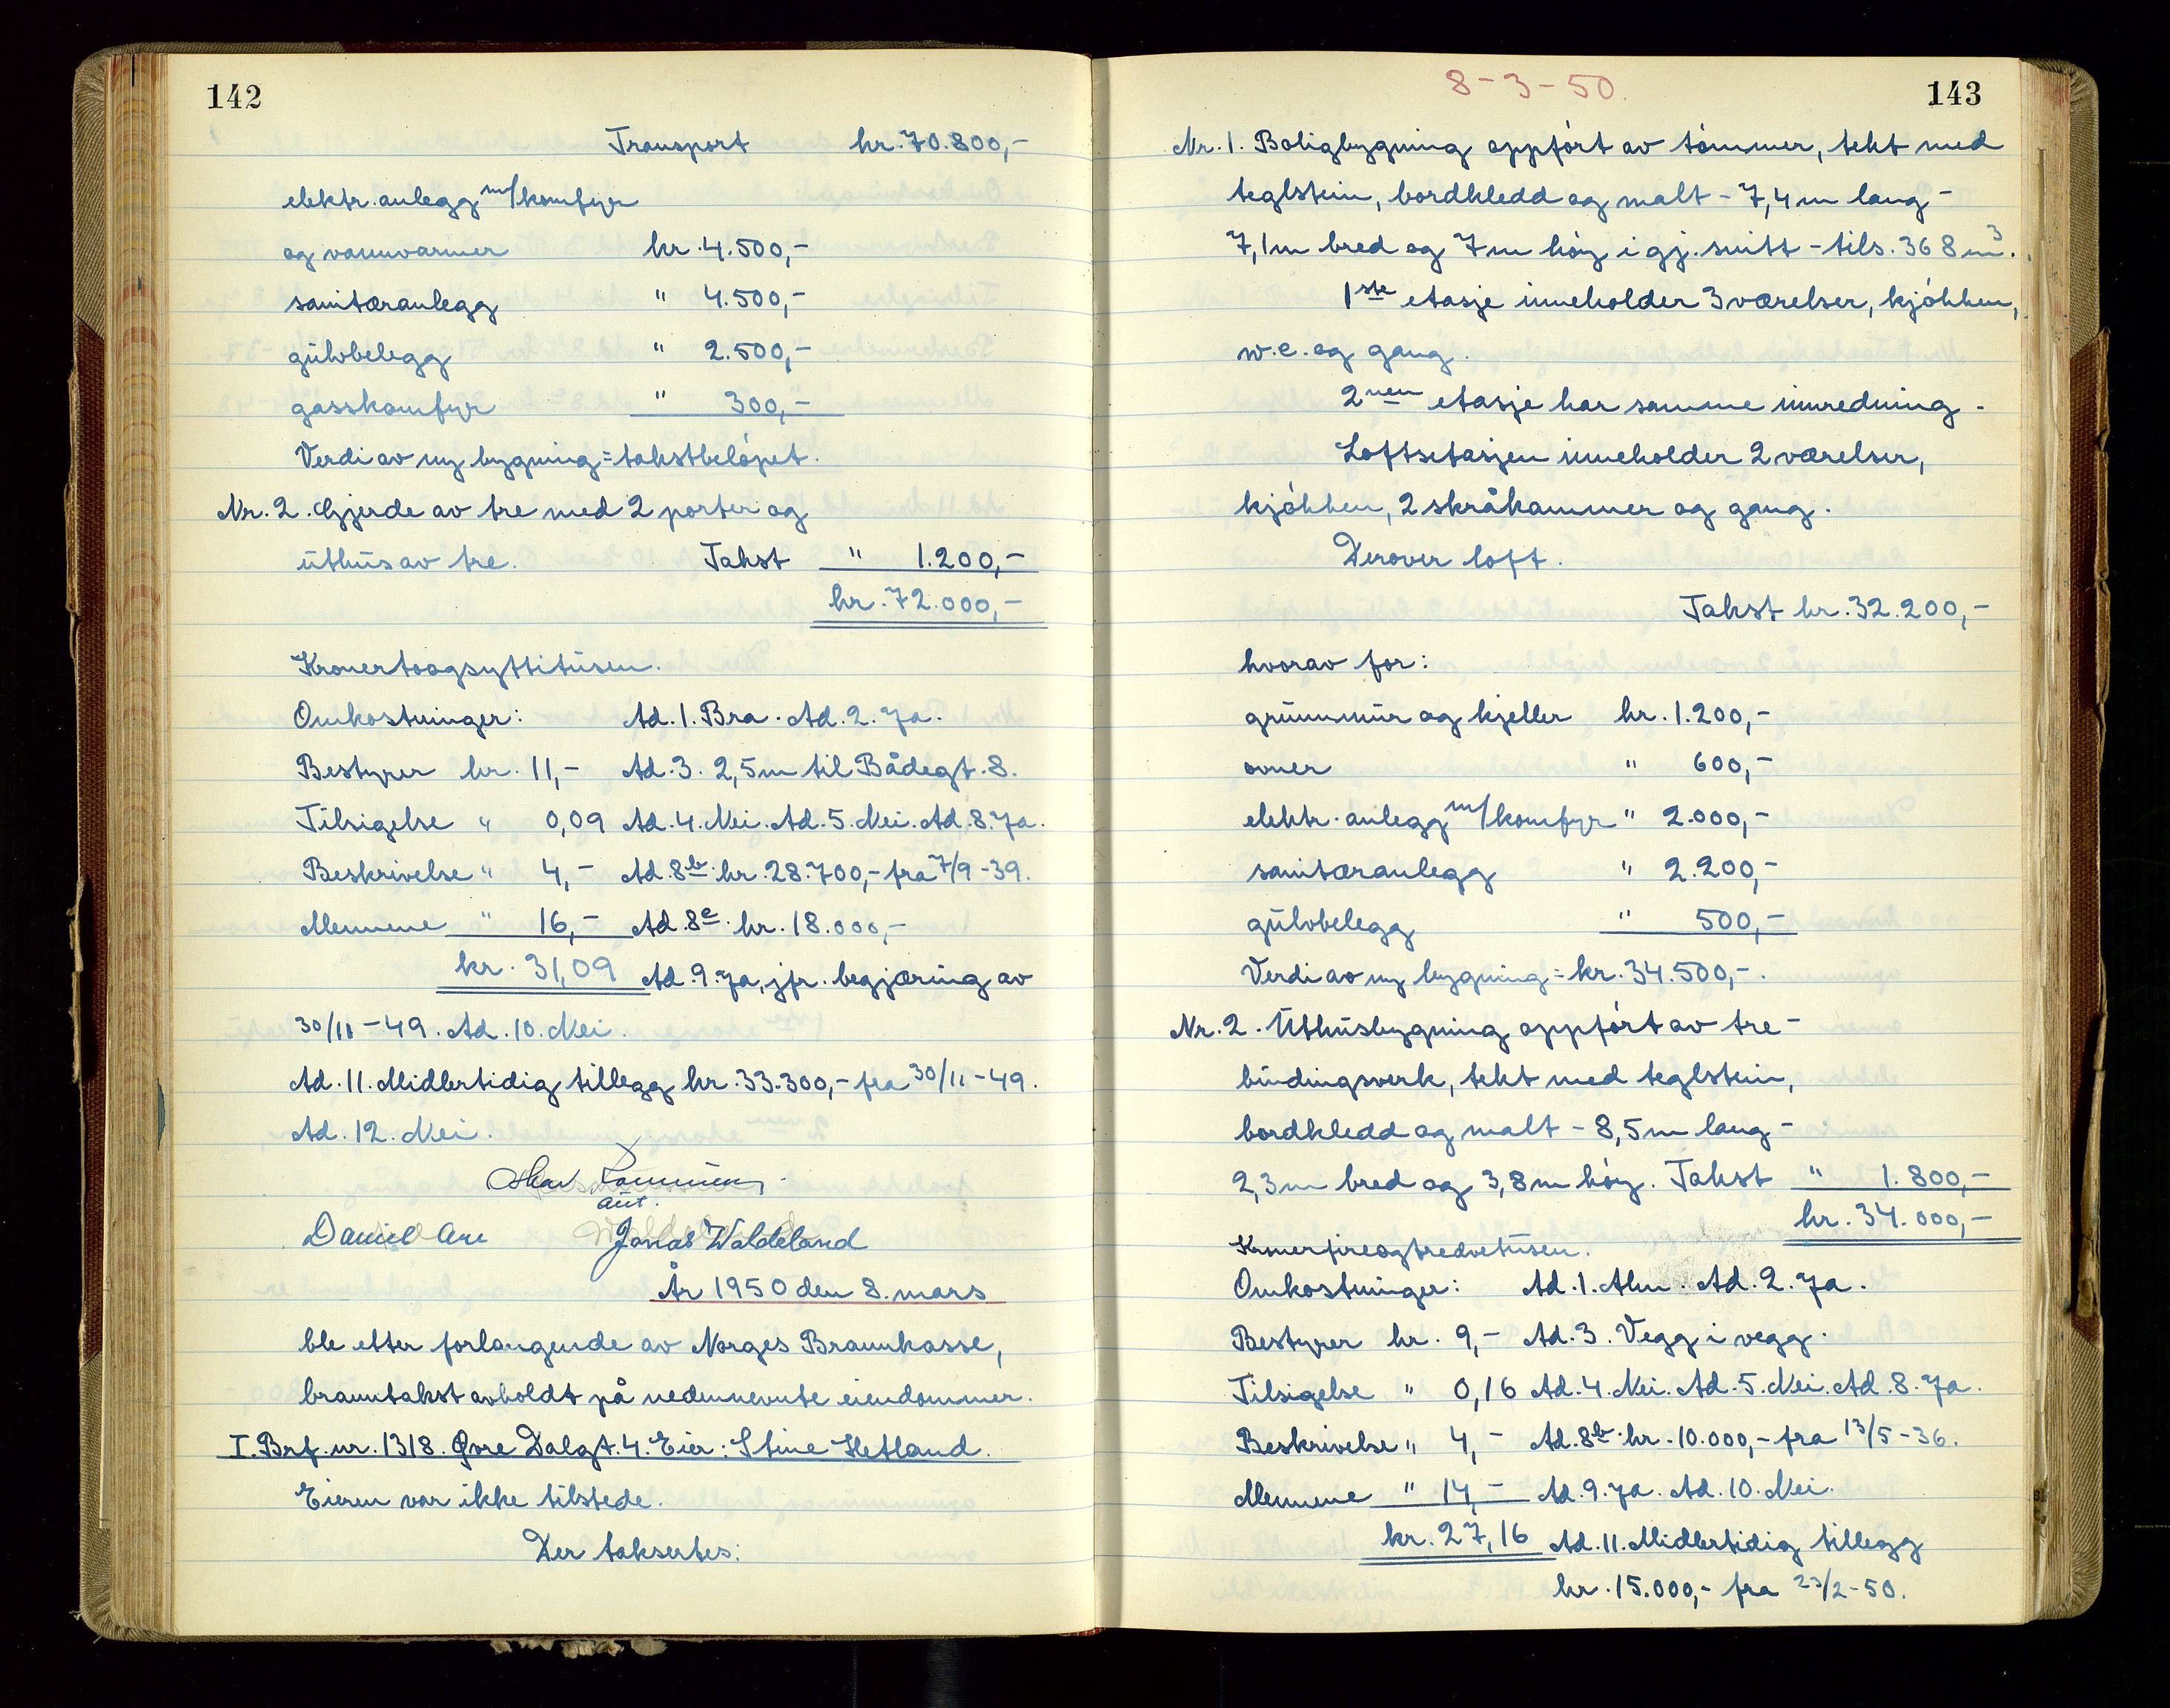 142
Transport kr. 70.800,-
elektr. anlegg m/komfyr
og vannvarmer kr. 4.500,-
sanitæranlegg " 4.500,-
gulvbelegg " 2.500,-
gasskomfyr " 300,-
Verdi av ny bygning = takstbeløpet.
Nr. 2. Gjerde av tre med 2 porter og
uthus av tre. Takst " 1.200,-
kr. 72.000,-
Kronertoogsyttitusen.
Omkostninger: Ad. 1. Bra. Ad. 2. Ja.
Bestyrer kr. 11,- Ad. 3. 2,5 m til Bådegt. 8.
Tilsigelse " 0,09 Ad. 4. Nei. Ad. 5. Nei. Ad. 8. Ja.
Beskrivelse " 4,- Ad. 8b. kr. 28.700,- fra 7/9-39.
Mennene " 16,- Ad. 8c. kr. 18.000,-
kr. 31,09 Ad. 9. Ja, jfr. begjæring av
30/11-49. Ad. 10. Nei.
Ad. 11. Midlertidig tillegg kr. 33.300,- fra 30/11-49.
Ad. 12. Nei.
aut.
Daniel Jonas Waldeland
År 1950 den 8. mars
ble etter forlangende av Norges Brannkasse,
branntakst avholdt på nedennevnte eiendommer.
I. Brf. nr. 1318. Øvre Dalgt. 4. Eier: Stine Hetland.
Eieren var ikke tilstede.
Der taksertes:
8-3-50.
143
Nr. 1. Boligbygning oppført av tømmer, tekt med
teglstein, bordkledd og malt - 7,4 m lang -
7,1 m bred og 7 m høy i gj. snitt - tils. 368 m³.
1ste etasje inneholder 3 værelser, kjøkken,
w.c. og gang.
2nen etasje har samme innredning.
Loftsetasjen inneholder 2 værelser,
kjøkken, 2 skråkammer og gang.
Derover loft.
Takst kr. 32.200,-
hvorav for:
grunnmur og kjeller kr. 1.200,-
ovner " 600,-
elektr. anlegg m/komfyr " 2.000,-
sanitæranlegg " 2.200,-
gulvbelegg " 500,-
Verdi av ny bygning = kr. 34.500,-.
Nr. 2. Uthusbygning oppført av tre-
bindingsverk, tekt med teglstein,
bordkledd og malt - 8,5 m lang -
2,3 m bred og 3,8 m høy. Takst " 1.800,-
kr. 34.000,-
Kronerfireogtredvetusen.
Omkostninger: Ad. 1. Alm. Ad. 2. Ja.
Bestyrer kr. 9,- Ad. 3. Vegg i vegg.
Tilsigelse " 0,16 Ad. 4. Nei. Ad. 5. Nei. Ad. 8. Ja.
Beskrivelse " 4,- Ad. 8b. kr. 10.000,- fra 13/5-36.
Mennene " 14,- Ad. 9. Ja. Ad. 10. Nei.
kr. 27,16 Ad. 11. Midlertidig tillegg
kr. 15.000,- fra 23/2-50.